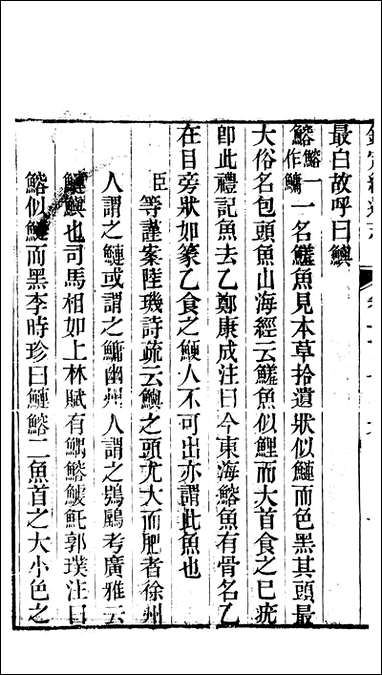 最白故呼曰鱮
鰫鰫一作鱅一名鱃魚見本草拾遺狀似鰱而色黑其頭最
大俗名包頭魚山海經云鱃魚似鯉而大首食之已疣
卽此禮記魚去乙鄭康成注曰今東海鰫魚有骨名乙
在目旁狀如篆乙食之鯁人不可出亦謂此魚也
臣等謹案陸璣詩疏云鱮之頭尤大而肥者徐州
人謂之鰱或謂之鱅幽州人謂之鴞鷉考廣雅云
鰱鱮也司馬相如上林賦有鰅鰫鰬魠郭璞注曰
鰫似鰱而黑李時珍曰鰱鰫二魚首之大小色之